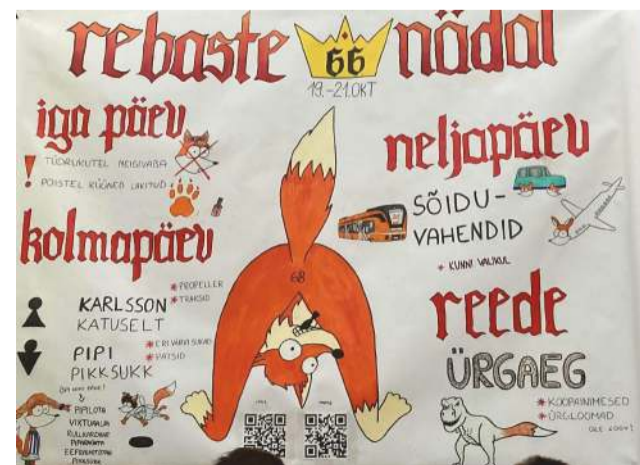 rebaste 66 nädal
19.-21.OKT
iga päev
! TÜDRUKUTEL MEIGIVABA
POISTEL KÜÜNED LAKITUD
kolmapäev
KARLSSON
KATUSELT
* PROPELLER
* TRAKSID
PIPI
PIKKSUKK
* ERI VÄRVI SUKAD
* PATSID
&
PIPILOTA
VIKTUALIA
RULLKARDIINE
PIPARMÜNTA
EEFRAIMITÜTAR
PIKKSUKK
68
neljapäev
SÕIDU-
VAHENDID
+ KUNNI VALIKUL
reede
ÜRGAEG
* KOOPAINIMESED
* ÜRGLOOMAD
OLE LOOV!